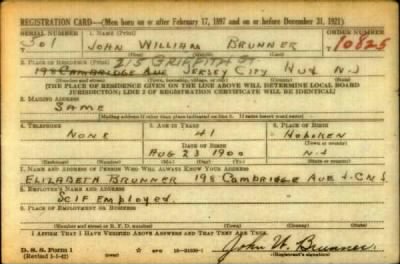 REGISTRATION CARD—(Men born on or after February 17, 1897 and on or before December 31, 1921)
SERIAL NUMBER 1. NAME (Print) ORDER NUMBER
301 JOHN WILLIAM BRUNNER 10825
2. PLACE OF RESIDENCE (Print) 215 GRIFFITH ST
198 CAMBRIDGE AVE JERSEY CITY HUD N-J
(Number and street) (Town, township, village, or city) (County) (State)
[THE PLACE OF RESIDENCE GIVEN ON THE LINE ABOVE WILL DETERMINE LOCAL BOARD
JURISDICTION; LINE 2 OF REGISTRATION CERTIFICATE WILL BE IDENTICAL]
3. MAILING ADDRESS
SAME
(Mailing address if other than place indicated on line 2. If same insert word same)
4. TELEPHONE 5. AGE IN YEARS 6. PLACE OF BIRTH
NONE 41 HOBOKEN
DATE OF BIRTH (Town or county)
AUG 23 1900 N-J
(Exchange) (Number) (Mo.) (Day) (Yr.) (State or country)
7. NAME AND ADDRESS OF PERSON WHO WILL ALWAYS KNOW YOUR ADDRESS
ELIZABETH BRUNNER 198 CAMBRIDGE AVE J.C N J
8. EMPLOYER'S NAME AND ADDRESS
SELF EMPLOYED
9. PLACE OF EMPLOYMENT OR BUSINESS
(Number and street or R. F. D. number) (Town) (County) (State)
I AFFIRM THAT I HAVE VERIFIED ABOVE ANSWERS AND THAT THEY ARE TRUE.
D. S. S. Form 1
(Revised 1-1-42) GPO John W. Brunner
(Registrant's signature)